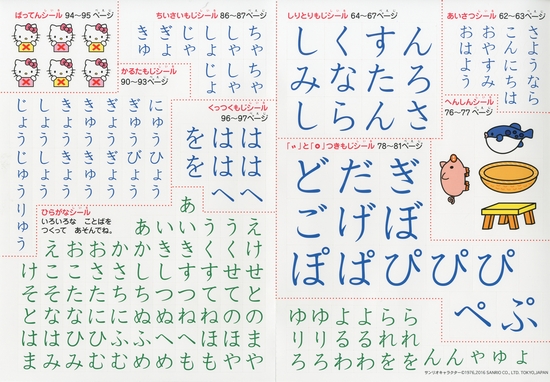 ばってんシール 94〜95ページ
ちいさいもじシール 86〜87ページ
ちゃ
しゃ
じょ
ぎょ
きゅ
ちゃ
しゃ
じょ
かるたもじシール
90〜93ページ
くっつくもじシール
96〜97ページ
をはは
をはは
へへ
ひらがなシール
いろいろな ことばを
つくって あそんでね。
あ
あいいううえ
えおおかかききくくけ
けここささししすすせせ
そそたたちちつつててと
とななににぬぬねねのの
ははひひふふへへほほま
まみみむむめめももやや
しりとりもじシール 64〜67ページ
しくすん
みなたろ
しらんさ
あいさつシール 62〜63ページ
さようなら
こんにちは
おやすみ
おはよう
へんしんシール
76〜77ページ
「゛」と「゜」つきもじシール 78〜81ページ
どだぎ
ごげぼ
ぽぱぴぴぴ
ぺぷ
ゆゆよよらら
りりるるれれ
ろろわわををんんゃゅょ
サンリオキャラクター©1976,2016 SANRIO CO., LTD. TOKYO,JAPAN